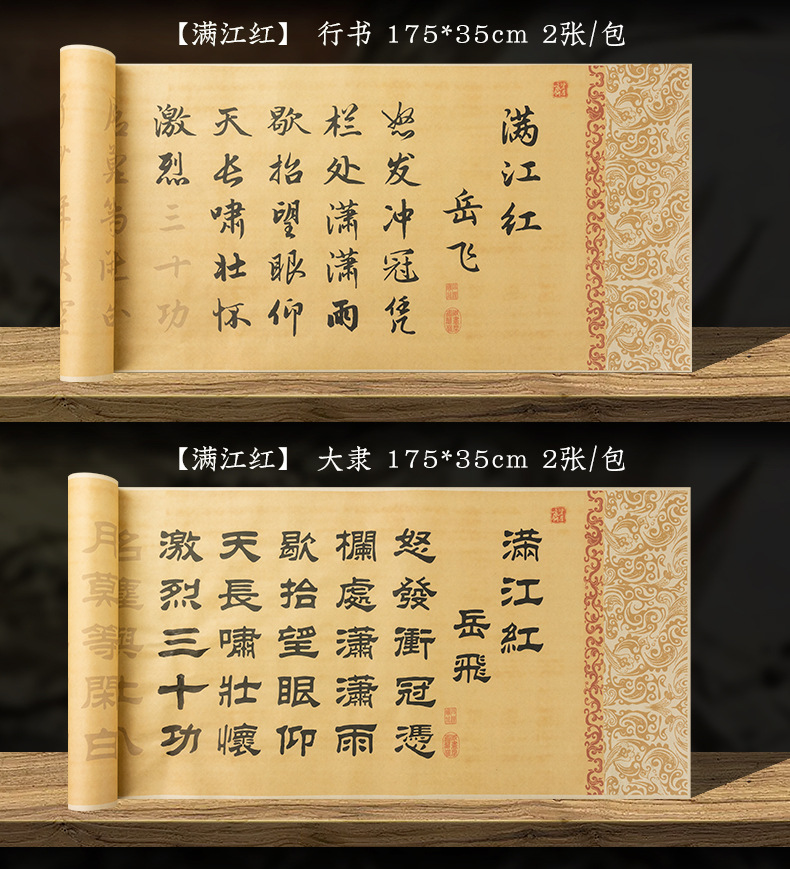 【满江红】 行书 175*35cm 2张/包
满江红
岳飞
怒发冲冠凭
栏处潇潇雨
歇抬望眼仰
天长啸壮怀
激烈三十功
【满江红】 大隶 175*35cm 2张/包
滿江紅
岳飛
怒發衝冠憑
欄處瀟瀟雨
歇抬望眼仰
天長嘯壯懷
激烈三十功